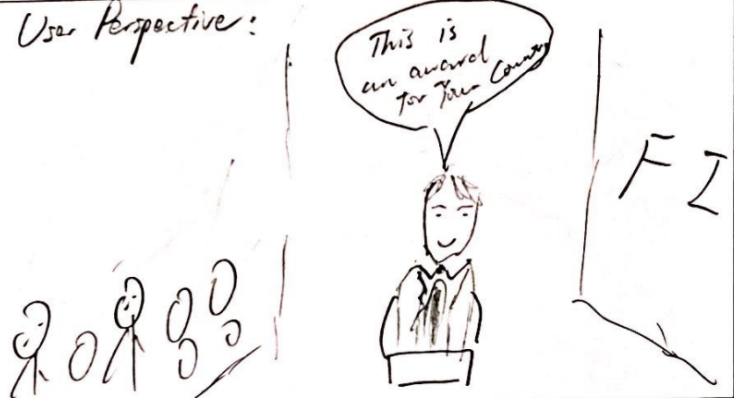 User Perspective:
This is
an award
for Your Country
FI